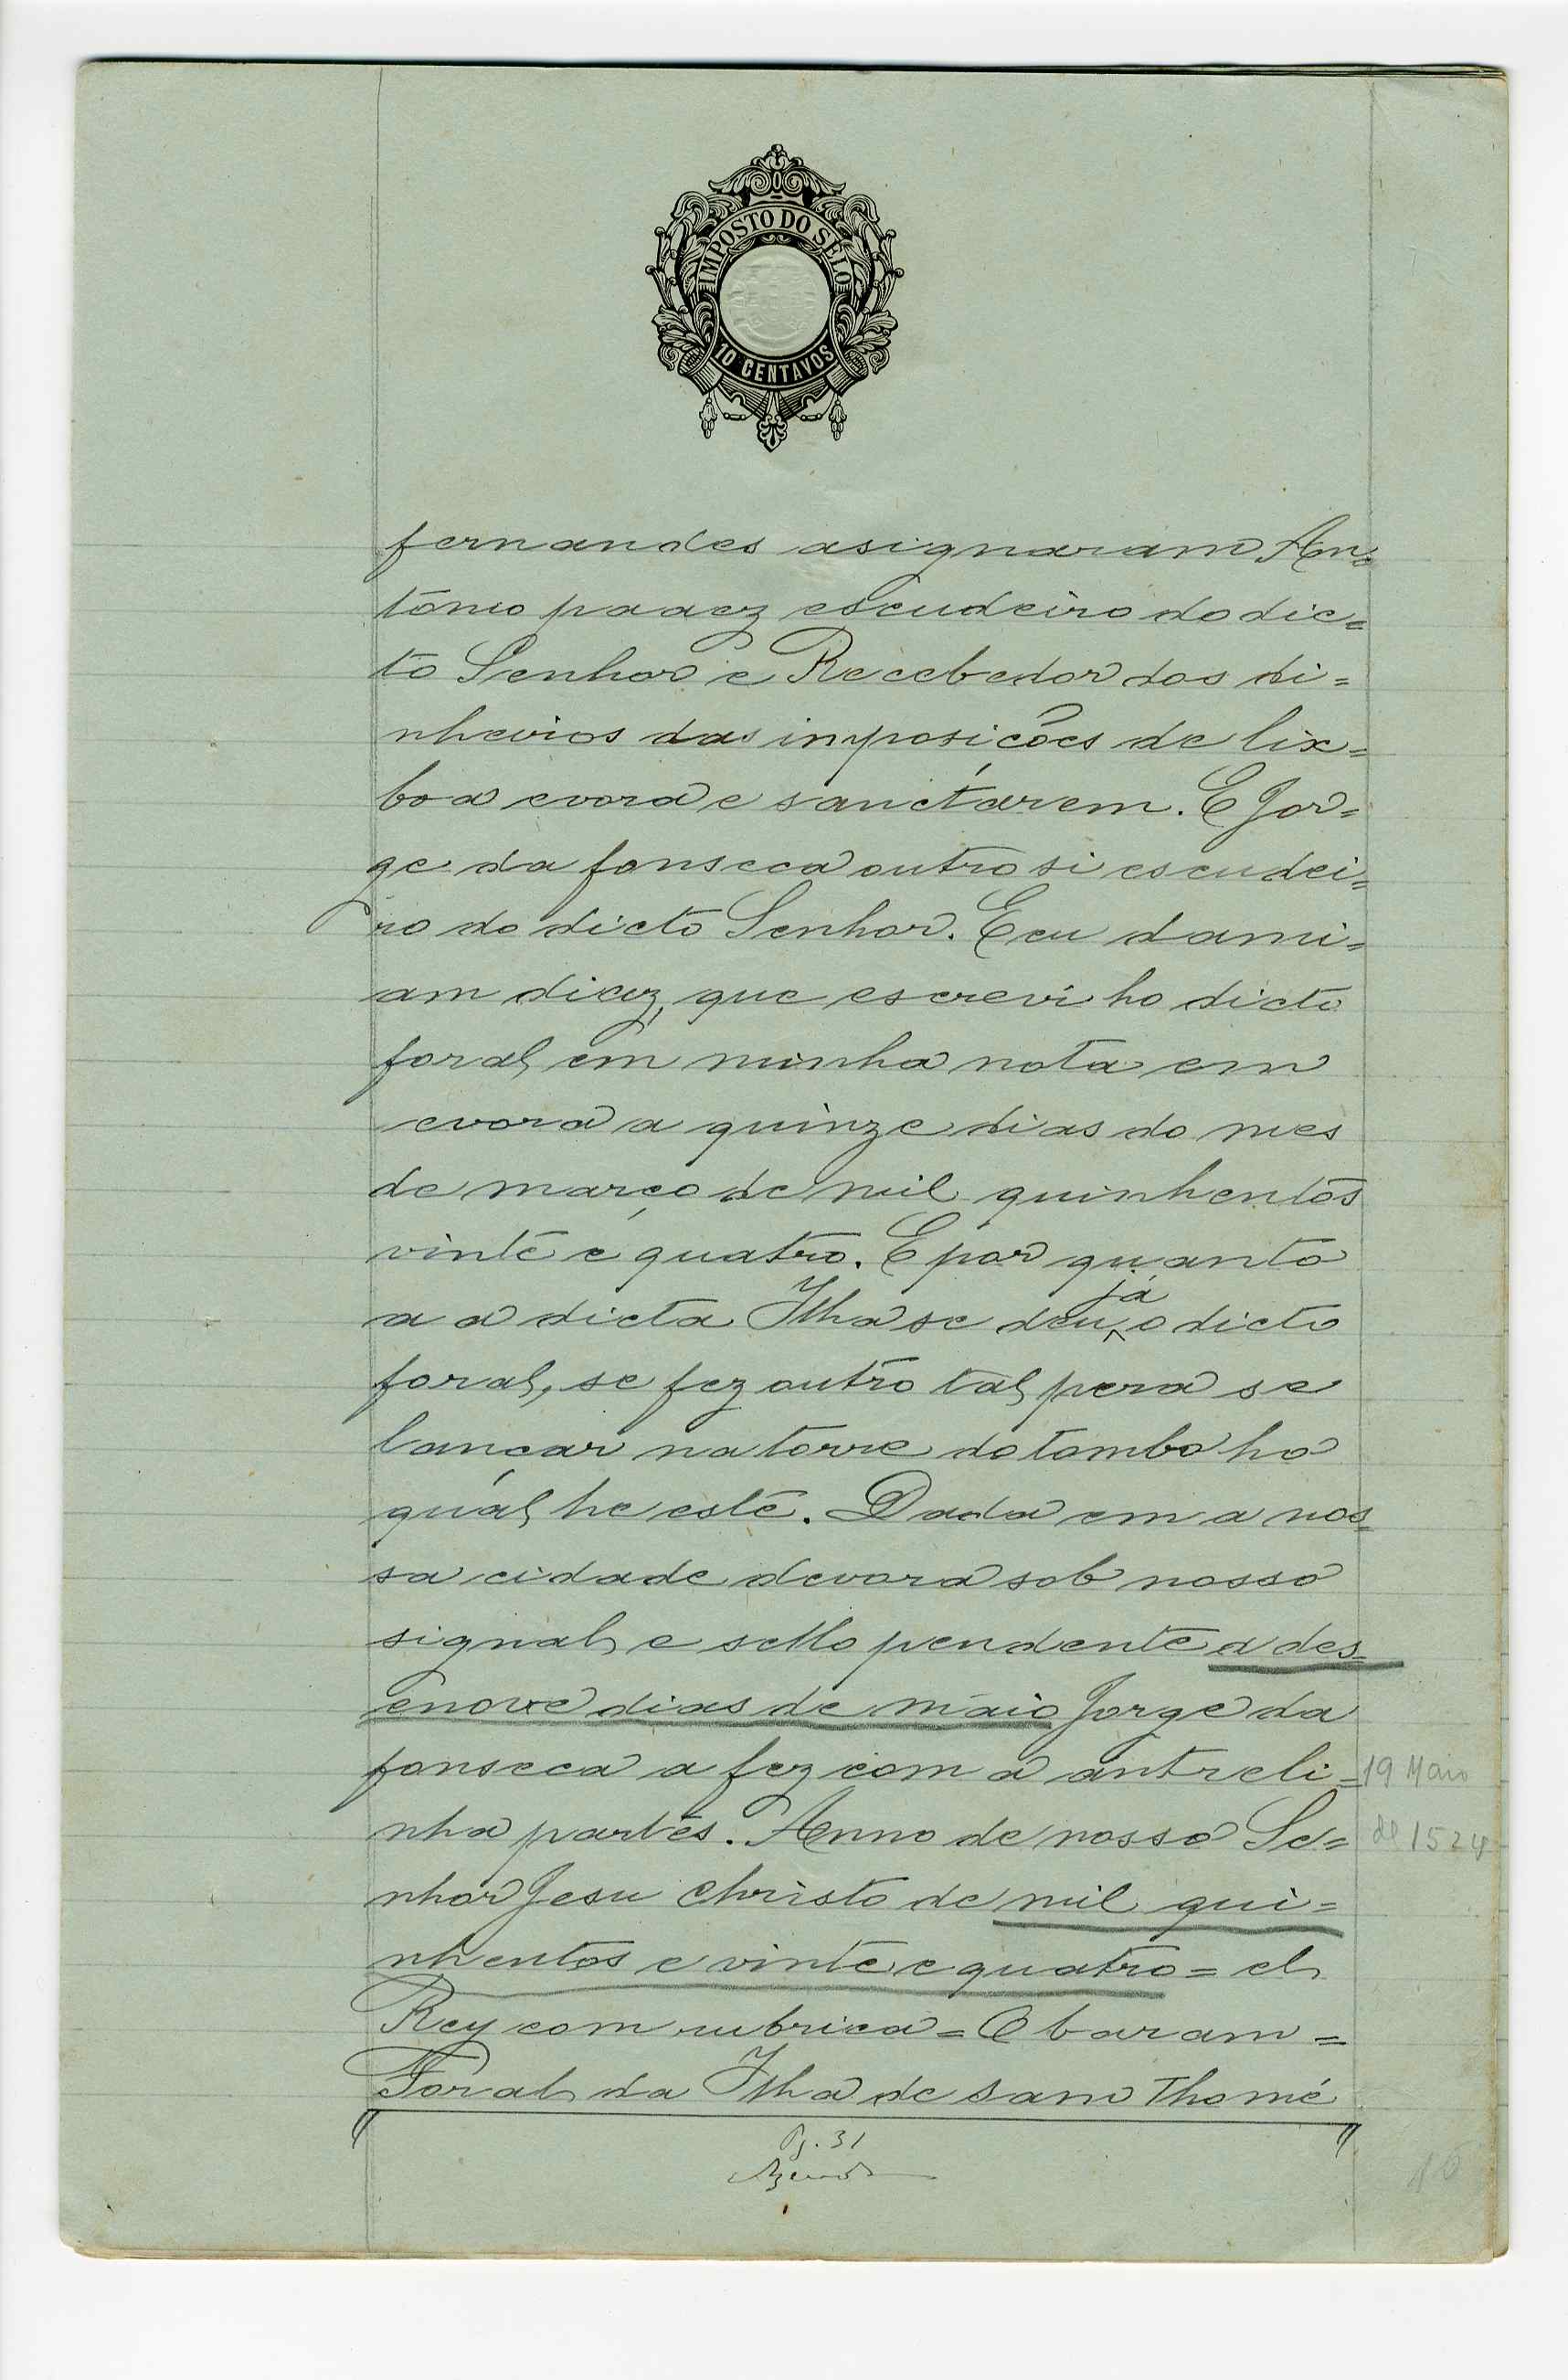 IMPOSTO DO SELO
10 CENTAVOS
fernandes asignaram An=
tónio paaez escudeiro do dic=
to Senhor e Recebedor dos di=
nheiros das imposições de lix=
boa evora e sanctarem. E Jor=
ge da fonseca outro si escudei=
ro do dicto Senhor. E eu dami=
am diaz, que escrevi ho dicto
foral em minha nota em
evora a quinze dias do mes
de março de mil quinhentos
vinte e quatro. E por quanto
já
a a dicta Ilha se deu ^ o dicto
foral, se fez outro tal pera se
lançar na torre do tombo ho
qual he este. Dada em a nos=
sa cidade devora sob nosso
signal e sello pendente a des=
enove dias de maio Jorge da
fonseca a fez com a antreli=
19 Maio
nha partes. Anno de nosso Se=
de 1524
nhor Jesu Christo de mil qui=
nhentos e vinte e quatro = el
Rey com rubrica = O baram =
Foral da Ilha de sam Thomé
Pg. 31
16